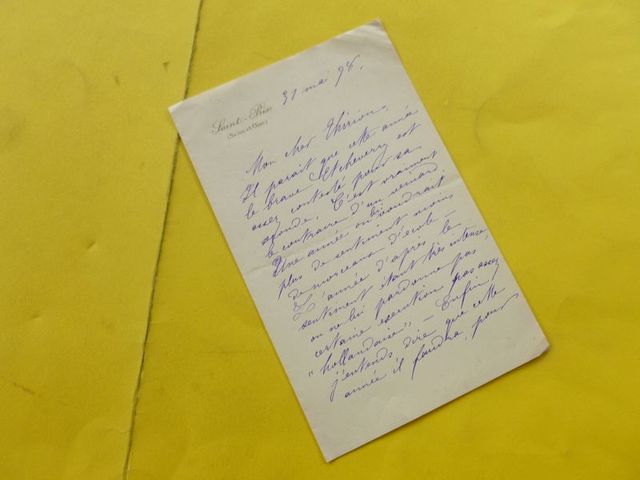 Saint-Prix
(Seine-et-Oise)
31 mai 98.
Mon cher Thirion,
Il parait que cette année
le brave Etcheverry est
assez contesté pour sa
ronde. C'est vraiment
le contraire d'un veinard
Une année on voudrait
plus de sentiment moins
de morceaux d'école —
L'année d'après le
sentiment étant très intense,
on ne lui pardonne pas
certaine exécution pas assez
"hollandaise" — Enfin
j'entends dire que cette
année il faudra, pour